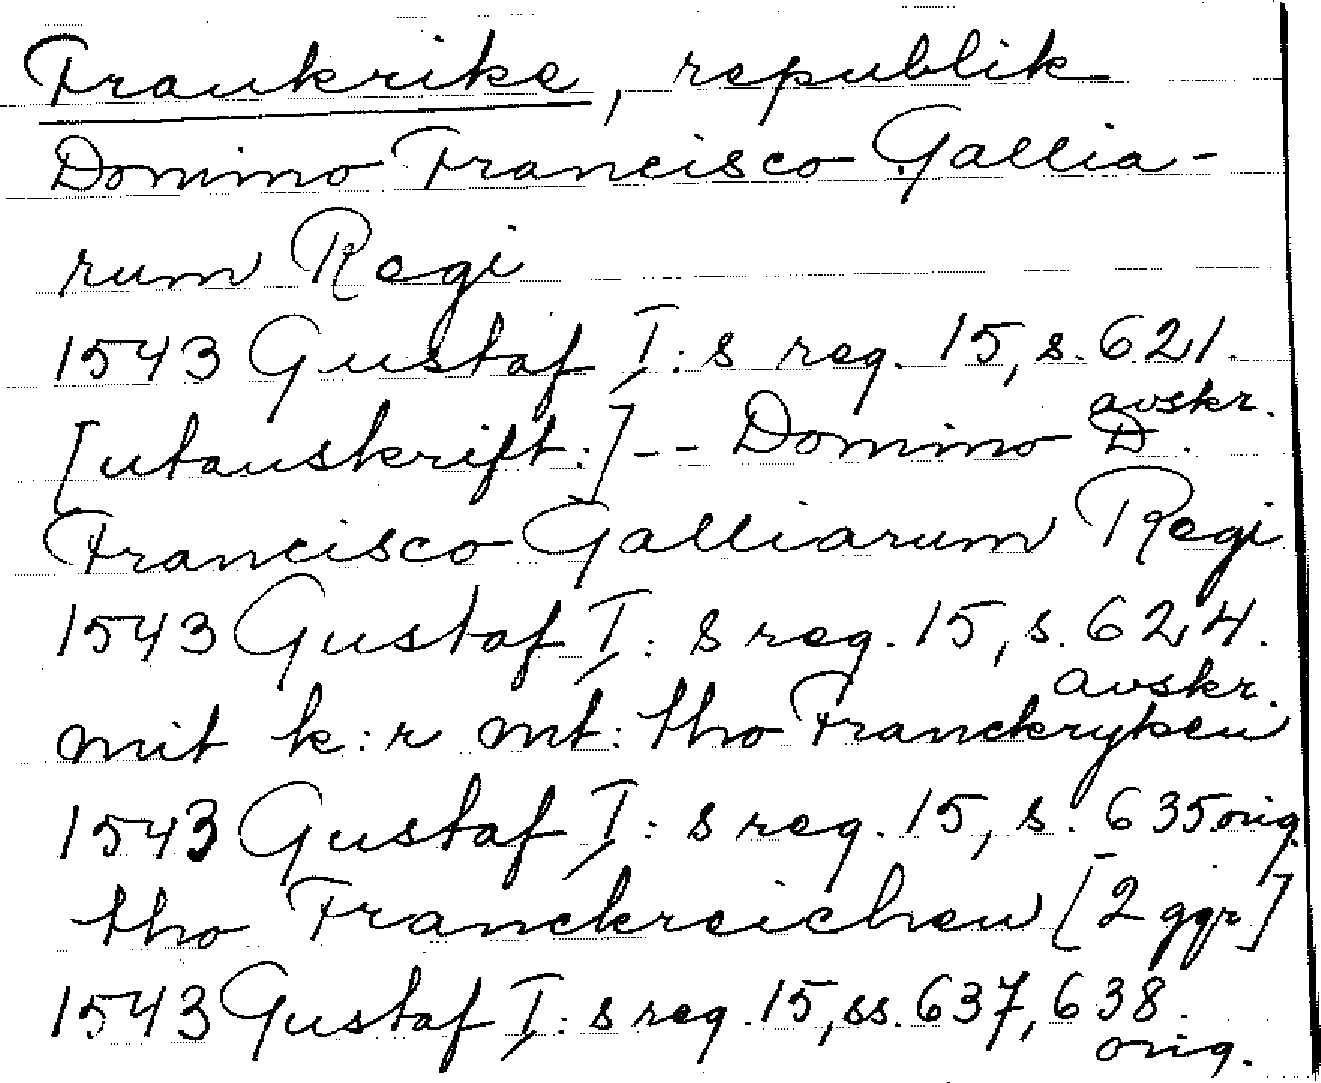 Frankrike, republik
Domino Francisco Gallia-
rum Regi
1543 Gustaf I:s reg. 15, s. 621.
avskr.
[utanskrift:] -- Domino D.
Francisco Galliarum Regi
1543 Gustaf I:s reg. 15, s. 624.
avskr.
mit k:r mt: tho Franckryken
1543 Gustaf I:s reg. 15, s. 635 orig.
tho Franckreichen [2 ggr]
1543 Gustaf I:s reg. 15, ss. 637, 638.
orig.